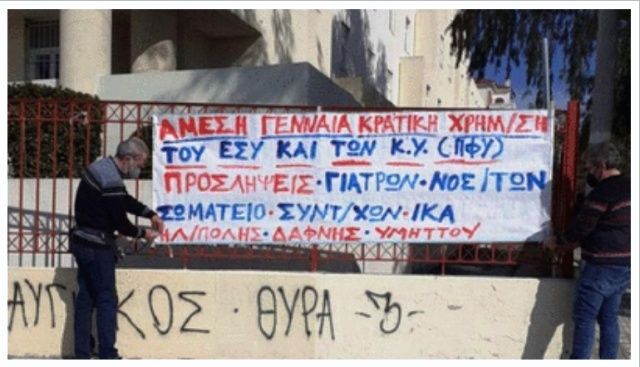 ΑΜΕΣΗ ΓΕΝΝΑΙΑ ΚΡΑΤΙΚΗ ΧΡΗΜ/ΣΗ
ΤΟΥ ΕΣΥ ΚΑΙ ΤΩΝ Κ.Υ. (ΠΦΥ)
ΠΡΟΣΛΗΨΕΙΣ · ΓΙΑΤΡΩΝ · ΝΟΣ/ΤΩΝ
ΣΩΜΑΤΕΙΟ · ΣΥΝΤ/ΧΩΝ · ΙΚΑ
ΗΛ/ΠΟΛΗΣ · ΔΑΦΝΗΣ · ΥΜΗΤΤΟΥ
ΘΥΡΑ -3-